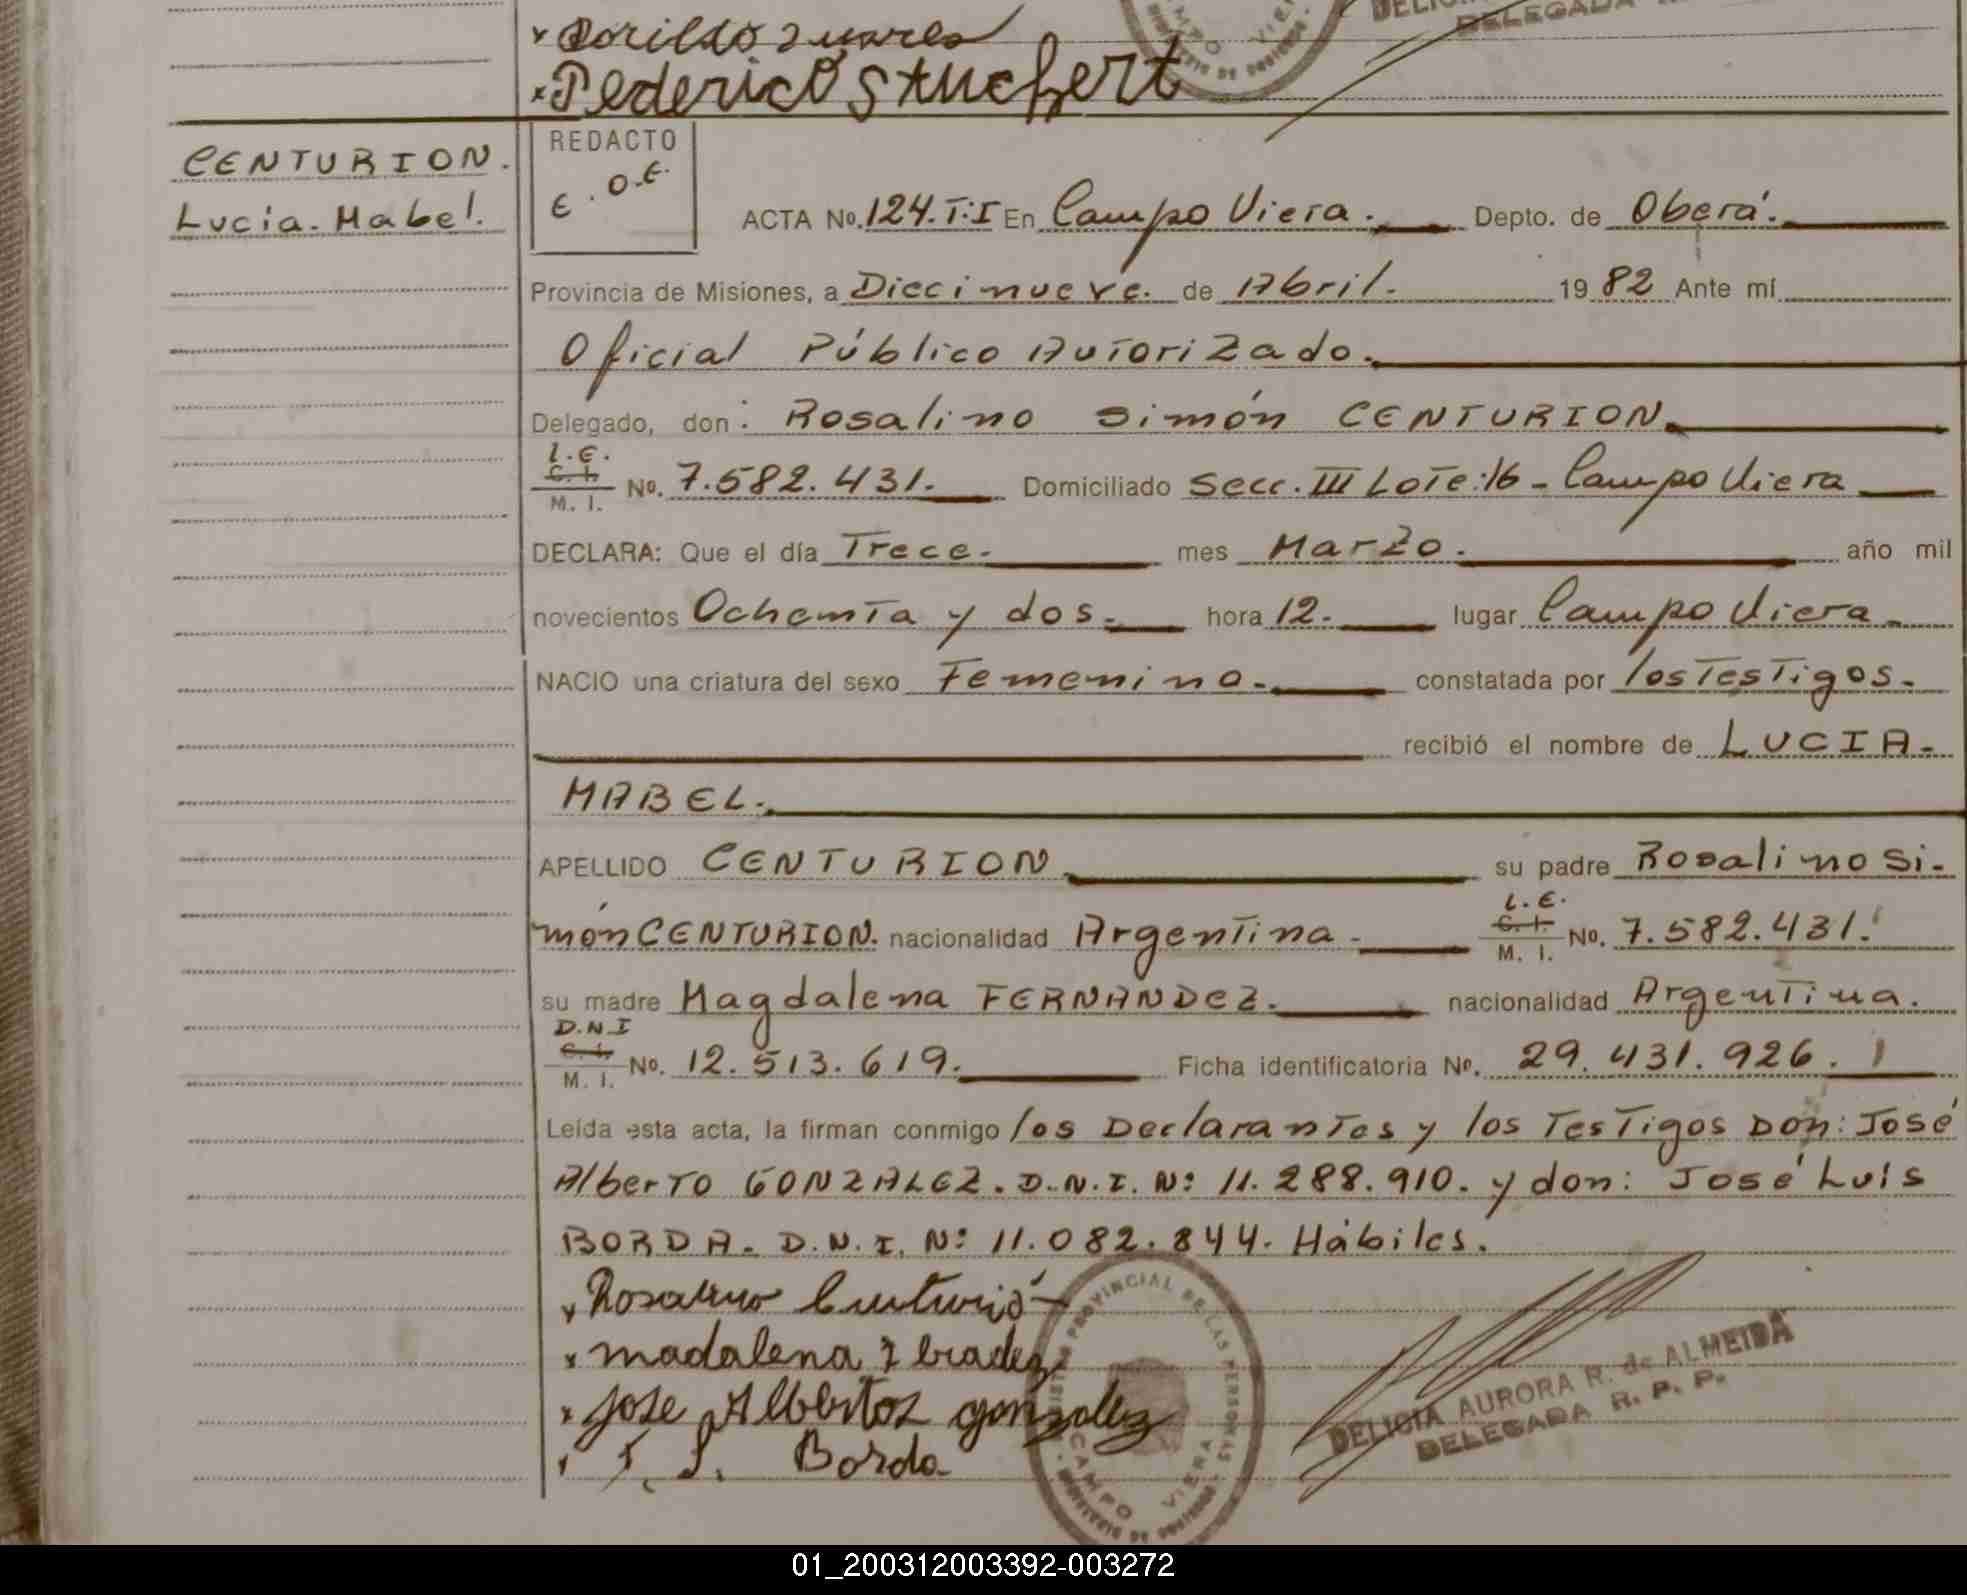 Dorildo Suares
DELEGADA
Federico Stuchert
CENTURION.
Lucia. Mabel.
REDACTO
E.O.E.
ACTA No. 124.T:I En Campo Viera. Depto. de Oberá.
Provincia de Misiones, a Diecinueve. de Abril. 19 82 Ante mí
Oficial Público Autorizado.
Delegado, don: Rosalino Simón CENTURION.
L.E.
C. I.
M. I.
No. 7.582.431. Domiciliado Secc. III Lote:16 - Campo Viera
DECLARA: Que el día Trece. mes Marzo. año mil
novecientos Ochenta y dos. hora 12. lugar Campo Viera.
NACIO una criatura del sexo Femenino. constatada por los Testigos.
recibió el nombre de LUCIA.
MABEL.
APELLIDO CENTURION su padre Rosalino Si-
món CENTURION. nacionalidad Argentina. L.E. C. I. M. I. No. 7.582.431.
su madre Magdalena FERNANDEZ. nacionalidad Argentina.
D.N.I
C. I.
M. I.
No. 12.513.619. Ficha identificatoria No. 29.431.926.
Leída esta acta, la firman conmigo los Declarantes y los Testigos Don: José
Alberto GONZALEZ. D.N.I. N: 11.288.910. y don: José Luis
BORDA. D.N.I. N: 11.082.844. Hábiles.
Rosalino Centurión
madalena
Jose Alberto gonzalez
J. L. Borda
PROVINCIAL DE LAS PERSONAS
CAMPO VIERA
DELICIA AURORA R. de ALMEIDA
DELEGADA R. P. P.
01_200312003392-003272